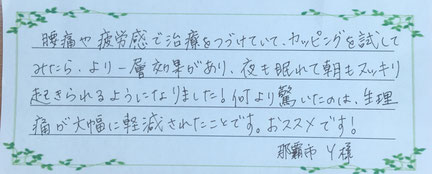 腰痛や疲労感で治療をつづけていて、カッピングを試して
みたら、より一層効果があり、夜も眠れて朝もスッキリ
起きられるようになりました！何より驚いたのは、生理
痛が大幅に軽減されたことです。おススメです！
那覇市 Y様